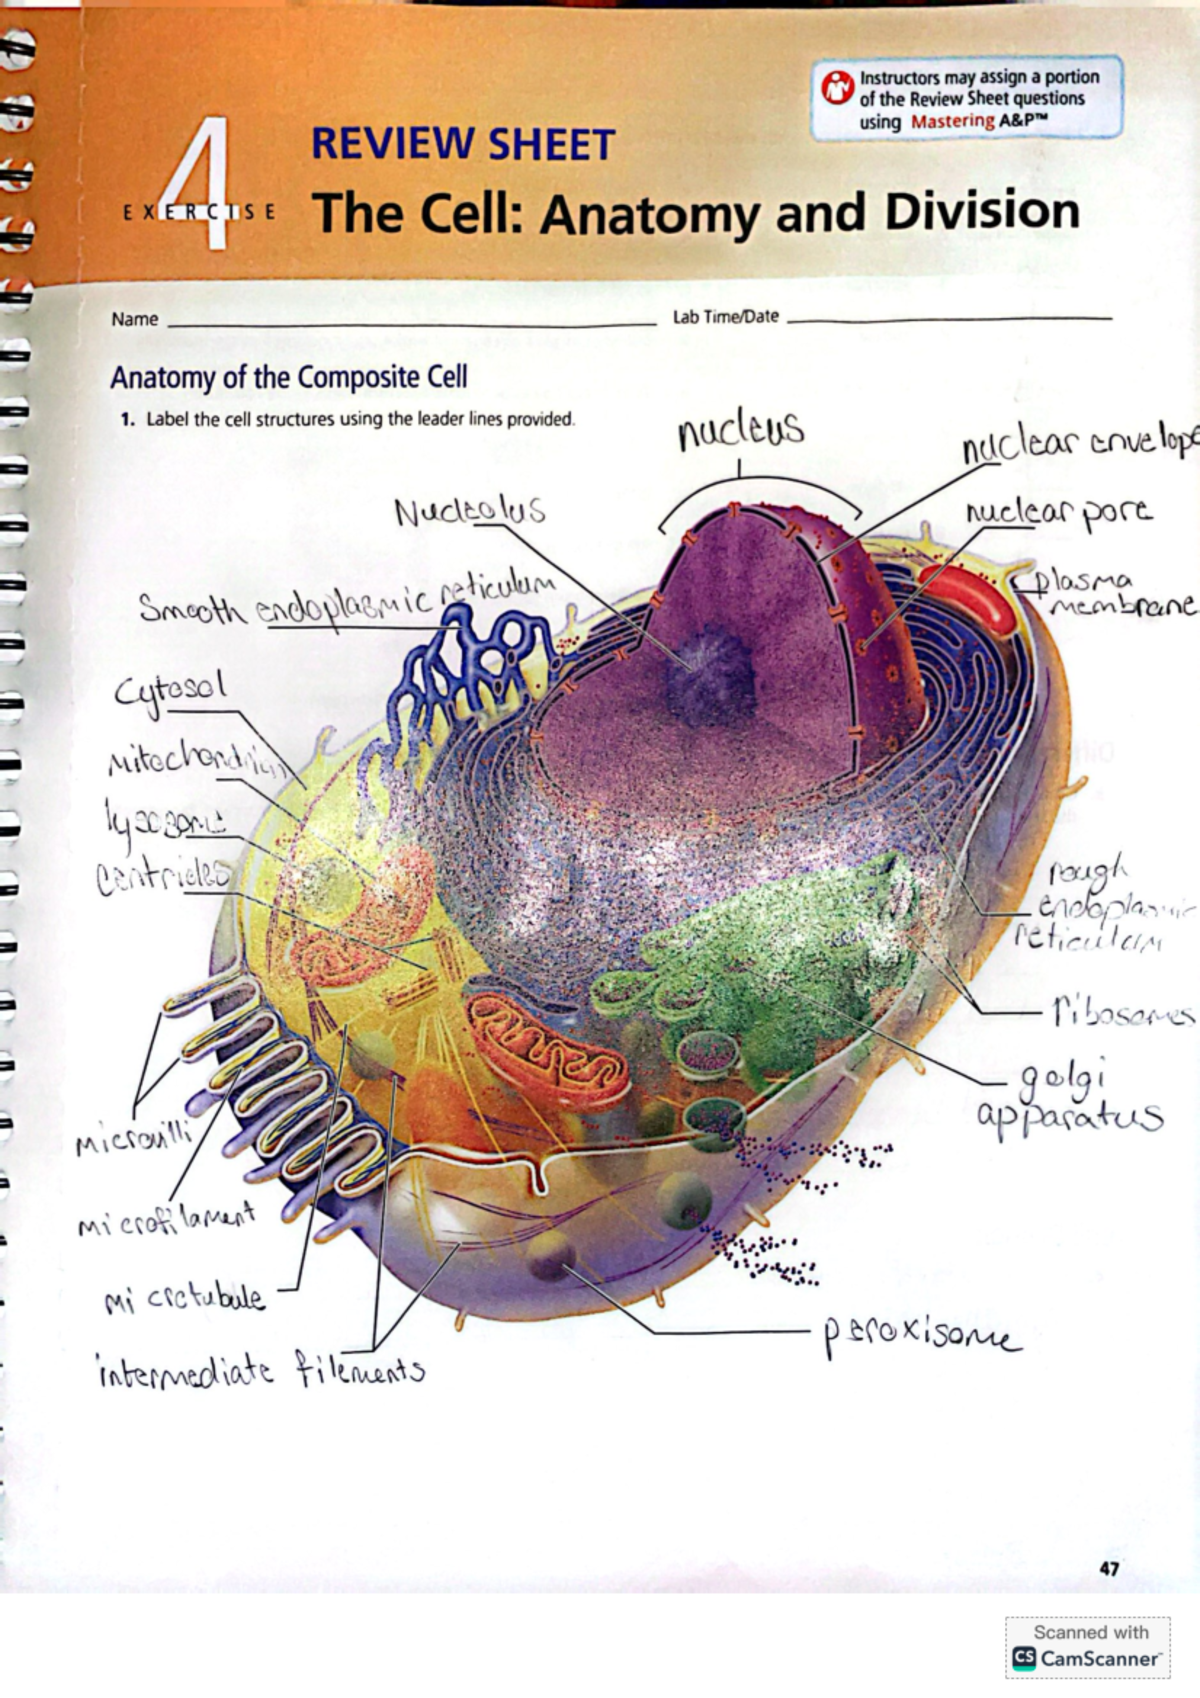 Instructors may assign a portion
of the Review Sheet questions
using Mastering A&P™
4
EXERCISE
REVIEW SHEET
The Cell: Anatomy and Division
Name
Lab Time/Date
Anatomy of the Composite Cell
1. Label the cell structures using the leader lines provided.
nucleus
nuclear envelope
Nucleolus
nuclear pore
Smooth endoplasmic reticulum
plasma
membrane
Cytosol
Mitochondrion
lysosome
Centrioles
rough
endoplasmic
reticulum
ribosomes
golgi
apparatus
microvilli
microfilament
microtubule
peroxisome
intermediate filements
47
Scanned with
CS CamScanner™